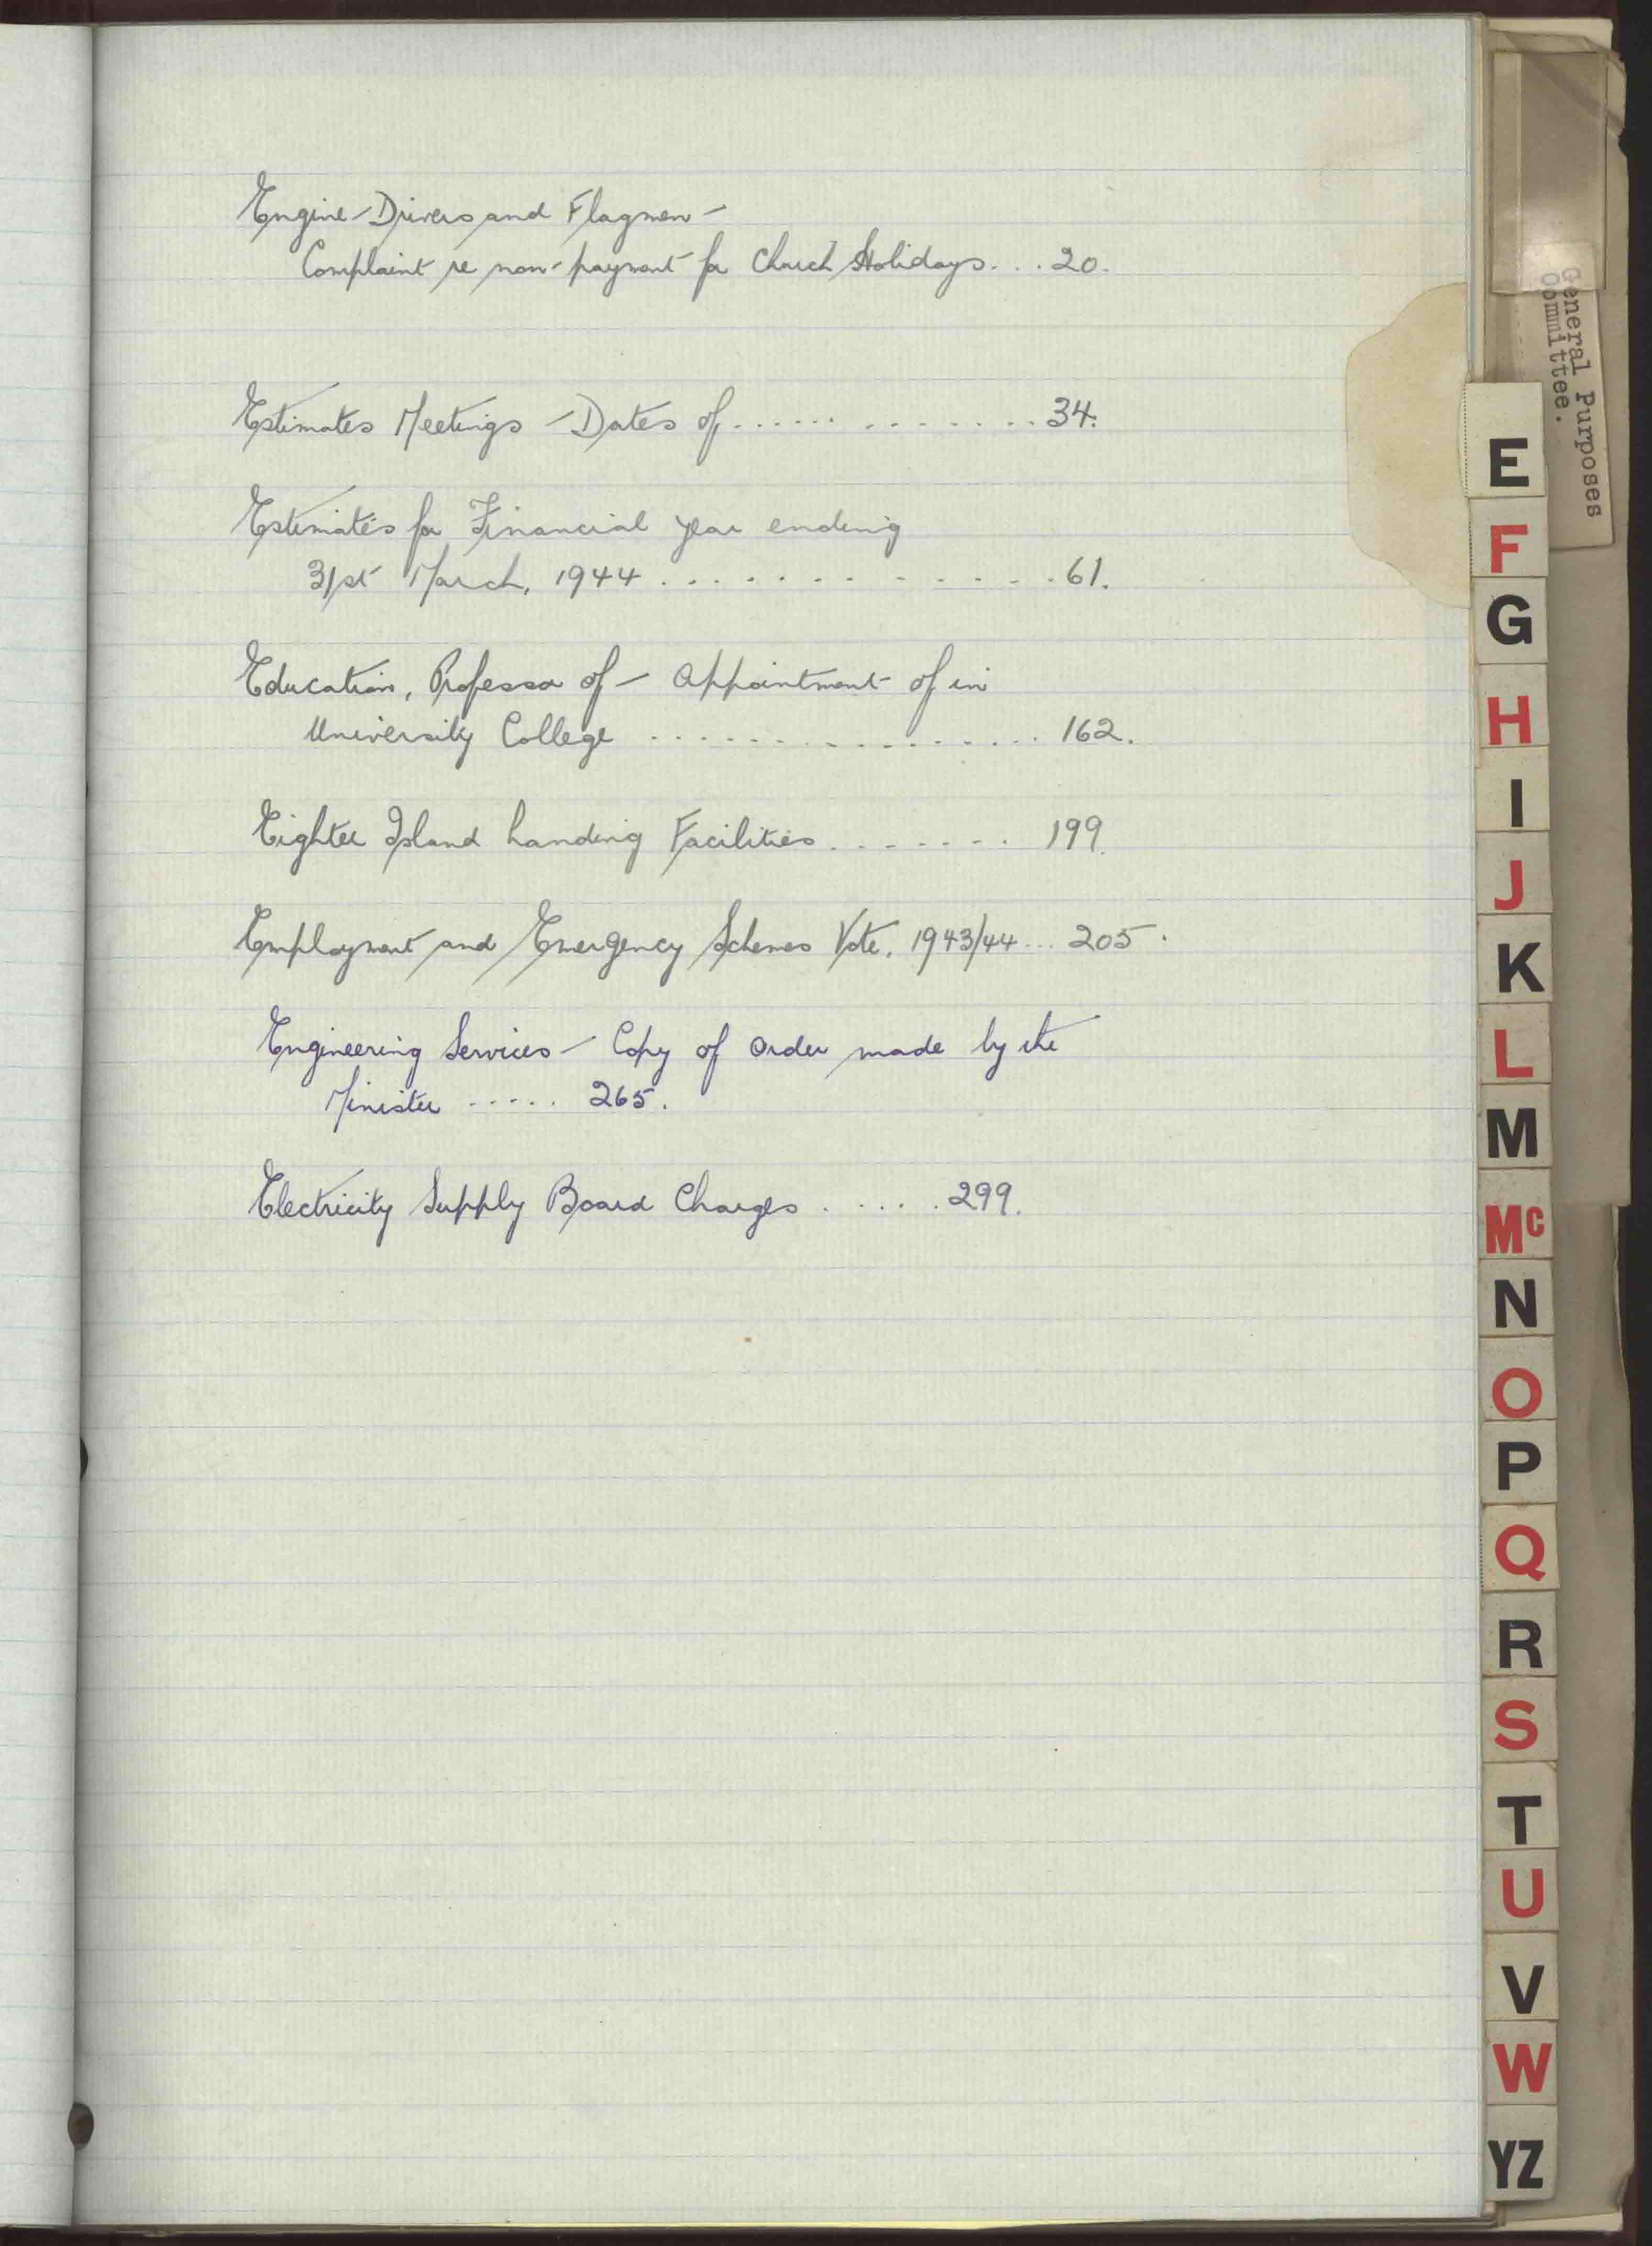 Engine-Drivers and Flagmen -
Complaint re non-payment for Church Holidays... 20.
Estimates Meetings - Dates of .............. 34.
Estimates for Financial year ending
31st March, 1944 .............. 61.
Education, Professor of - Appointment of in
University College ................. 162.
Eighter Island Landing Facilities ........ 199.
Employment and Emergency Schemes Vote, 1943/44 ... 205.
Engineering Services - Copy of Order made by the
Minister ..... 265.
Electricity Supply Board Charges ...... 299.
General Purposes
Committee.
E
F
G
H
I
J
K
L
M
Mc
N
O
P
Q
R
S
T
U
V
W
YZ